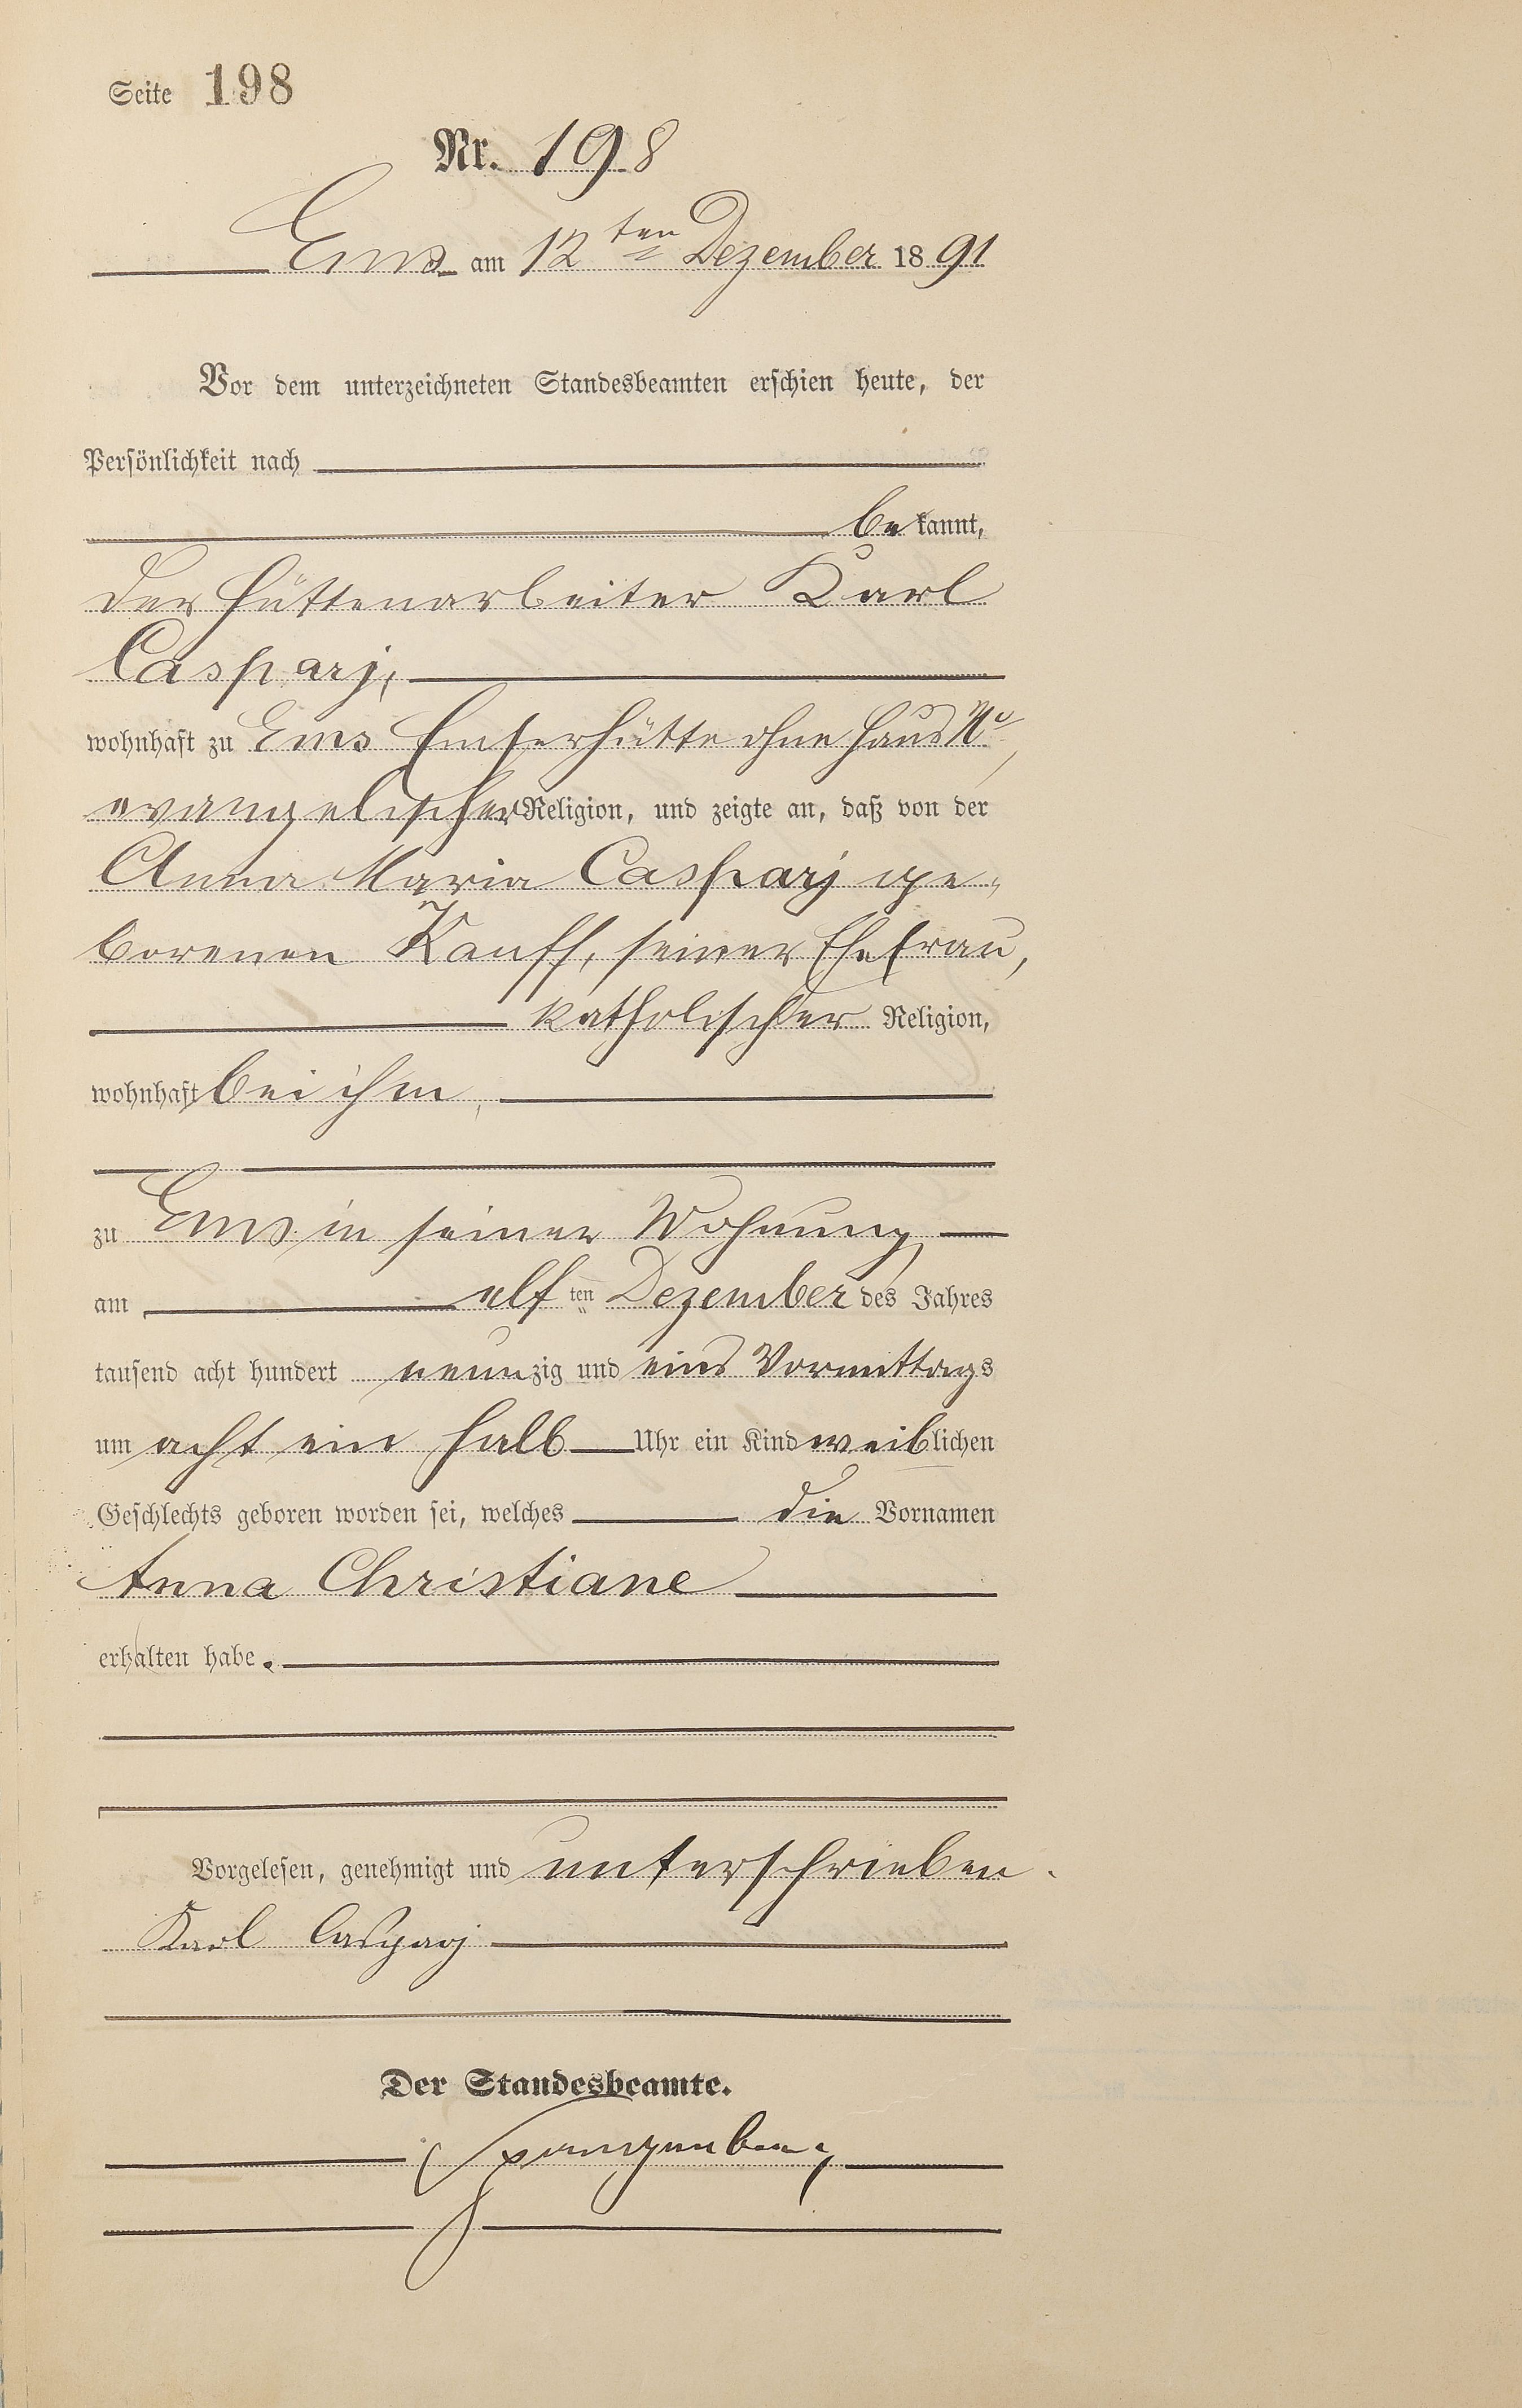 Seite 198
Nr. 198
Ems am 12ten Dezember 1891
Vor dem unterzeichneten Standesbeamten erschien heute, der
Persönlichkeit nach
bekannt,
der Hüttenarbeiter Karl
Casparj,
wohnhaft zu Ems Emserhütte ohne Haus No,
evangelischer Religion, und zeigte an, daß von der
Anna Maria Casparj ge-
borenen Kauff, seiner Ehefrau,
katholischer Religion,
wohnhaft bei ihm,
zu Ems in seiner Wohnung
am elften Dezember des Jahres
tausend acht hundert neunzig und eins Vormittags
um acht ein halb Uhr ein Kind weiblichen
Geschlechts geboren worden sei, welches die Vornamen
Anna Christiane
erhalten habe.
Vorgelesen, genehmigt und unterschrieben.
Karl Casparj
Der Standesbeamte.